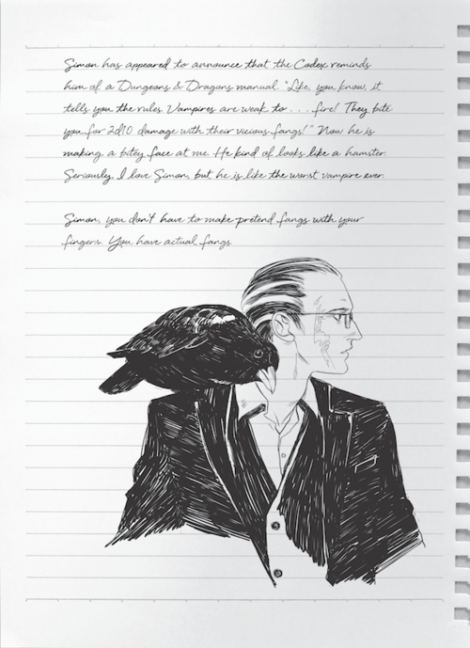 Simon has appeared to announce that the Codex reminds
him of a Dungeons & Dragons manual. "Like, you know, it
tells you the rules. Vampires are weak to . . . fire! They bite
you for 2d10 damage with their vicious fangs!" Now he is
making a bitey face at me. He kind of looks like a hamster.
Seriously, I love Simon, but he is like the worst vampire ever.
Simon, you don't have to make pretend fangs with your
fingers. You have actual fangs.